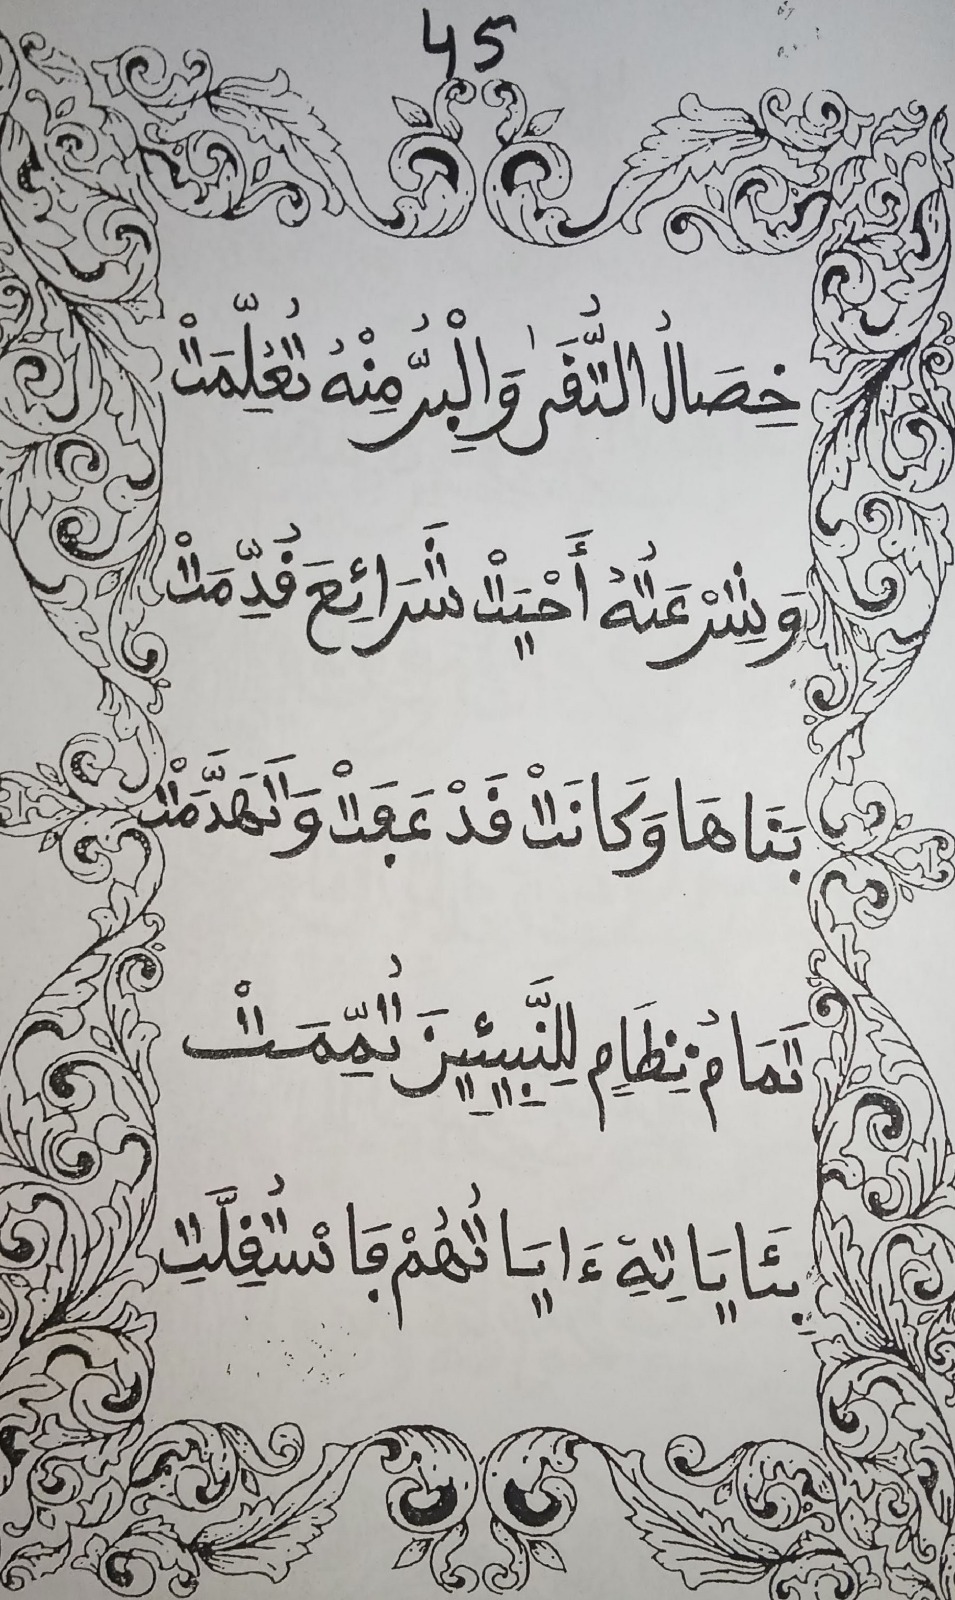 45
خِصَالُ التُّقَىٰ وَالْبِرُّ مِنْهُ تُعُلِّمَتْ
وَشِرْعَتُهُ أَحْيَتْ شَرَائِعَ قُدِّمَتْ
بَنَاهَا وَكَانَتْ قَدْ عَفَتْ وَتَهَدَّمَتْ
تَمَامُ نِظَامِ لِلنَّبِيئِينَ تُمِّمَتْ
بِئَايَاتِهِ ءَايَاتُهُمْ فَاسْتُقِلَّتِ